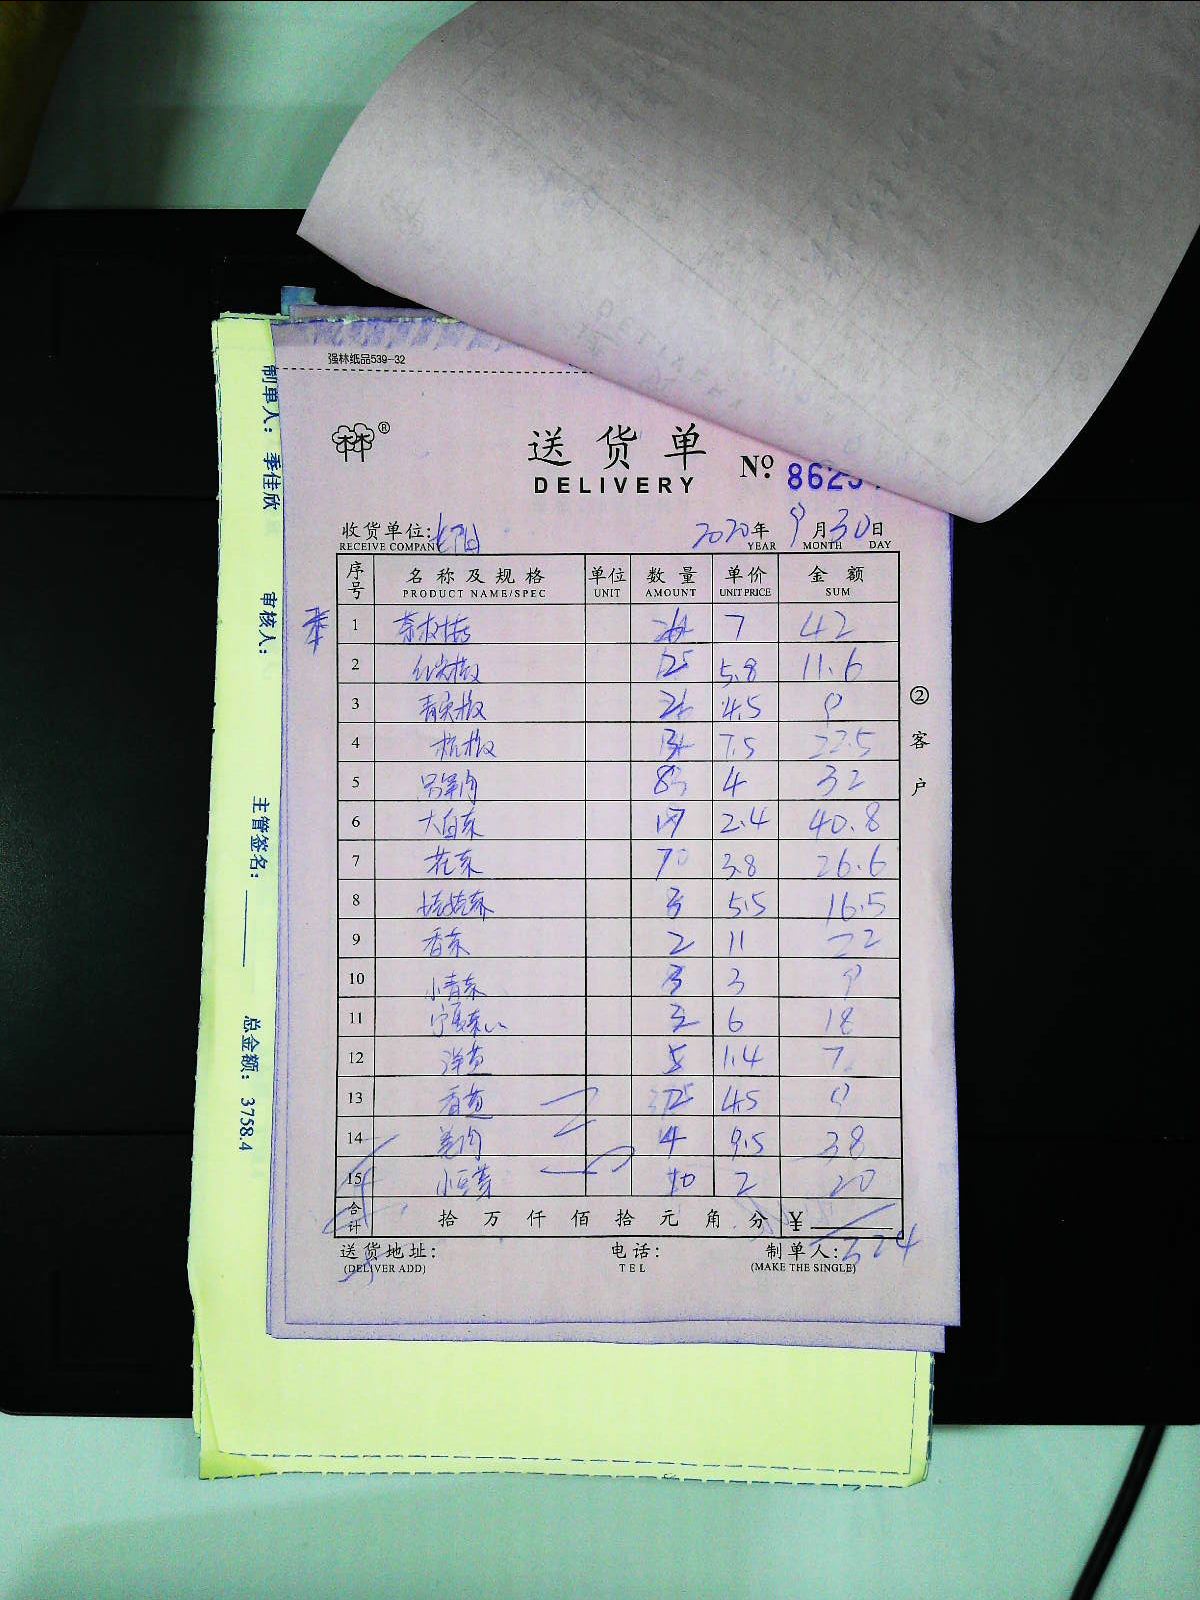 强林纸品539-32
送货单
DELIVERY
No. 8625
收货单位:
RECEIVE COMPANY
2020年 9月30日
YEAR MONTH DAY
序号 名称及规格 单位 数量 单价 金额
PRODUCT NAME/SPEC UNIT AMOUNT UNIT PRICE SUM
1 7 42
2 5.8 11.6
3 4.5 9
4 杭椒 7.5 22.5
5 8 4 32
6 大白菜 17 2.4 40.8
7 花菜 7 3.8 26.6
8 3 5.5 16.5
9 香菜 2 11 22
10 小青菜 3 3 9
11 3 6 18
12 洋芋 5 1.4 7
13 4.5 9
14 4 9.5 38
15 小豆芽 10 2 20
合计 拾 万 仟 佰 拾 元 角 分 ¥ 324
送货地址: 电话: 制单人:
(DELIVER ADD) TEL (MAKE THE SINGLE)
② 客户
制单人: 季佳欣 审核人: 主管签名: 总金额: 3758.4